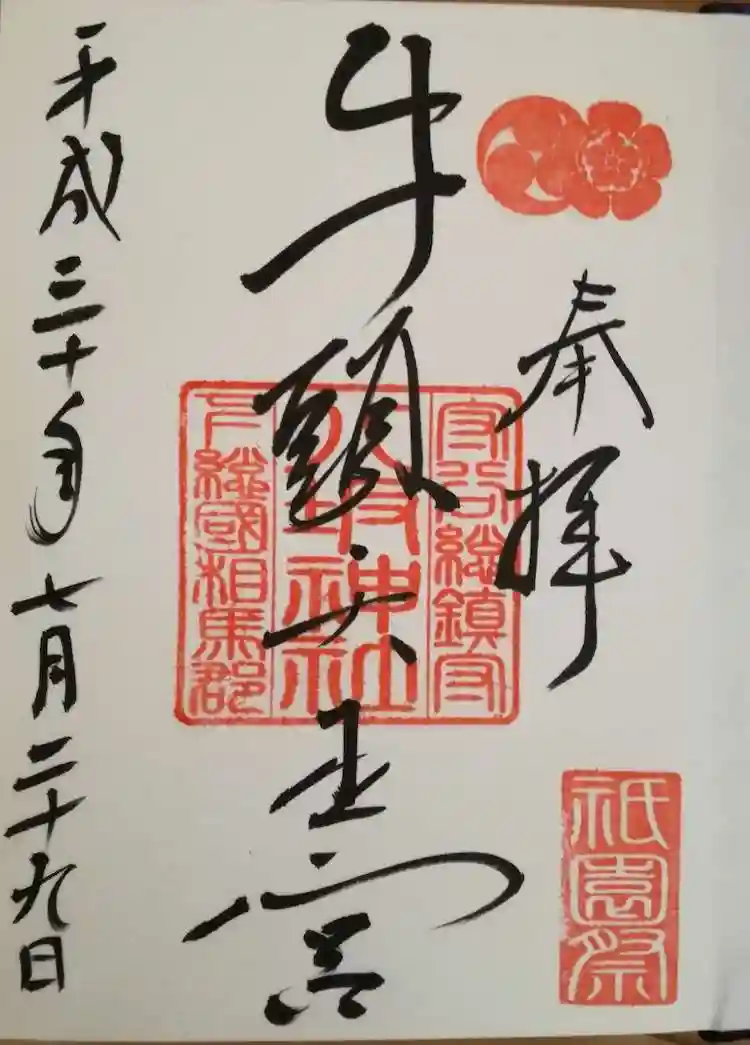 奉拝
祇園祭
守谷総鎮守
八坂神社
下総國相馬郡
牛頭天王宮
平成三十年七月二十九日